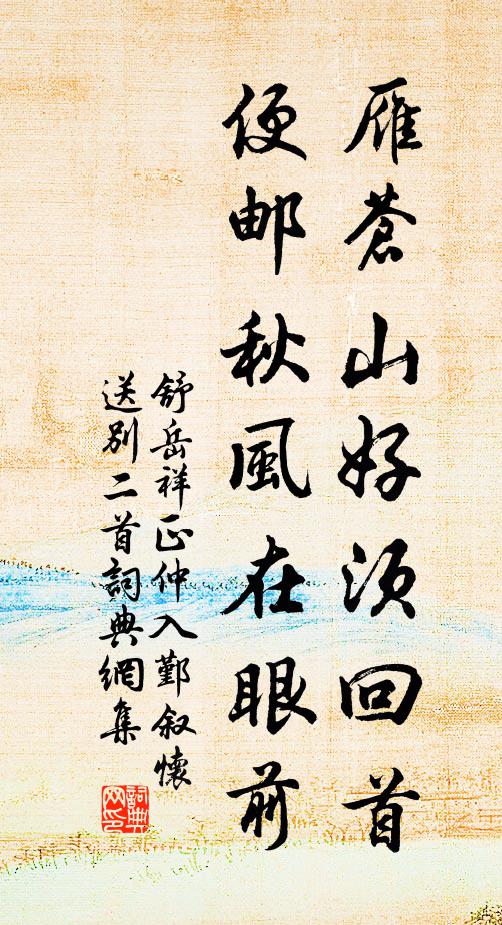 雁蒼山好須回首
便邮秋風在眼前
舒岳祥正仲入鄞叙懷
送别二首詞典網集
詞典
网印